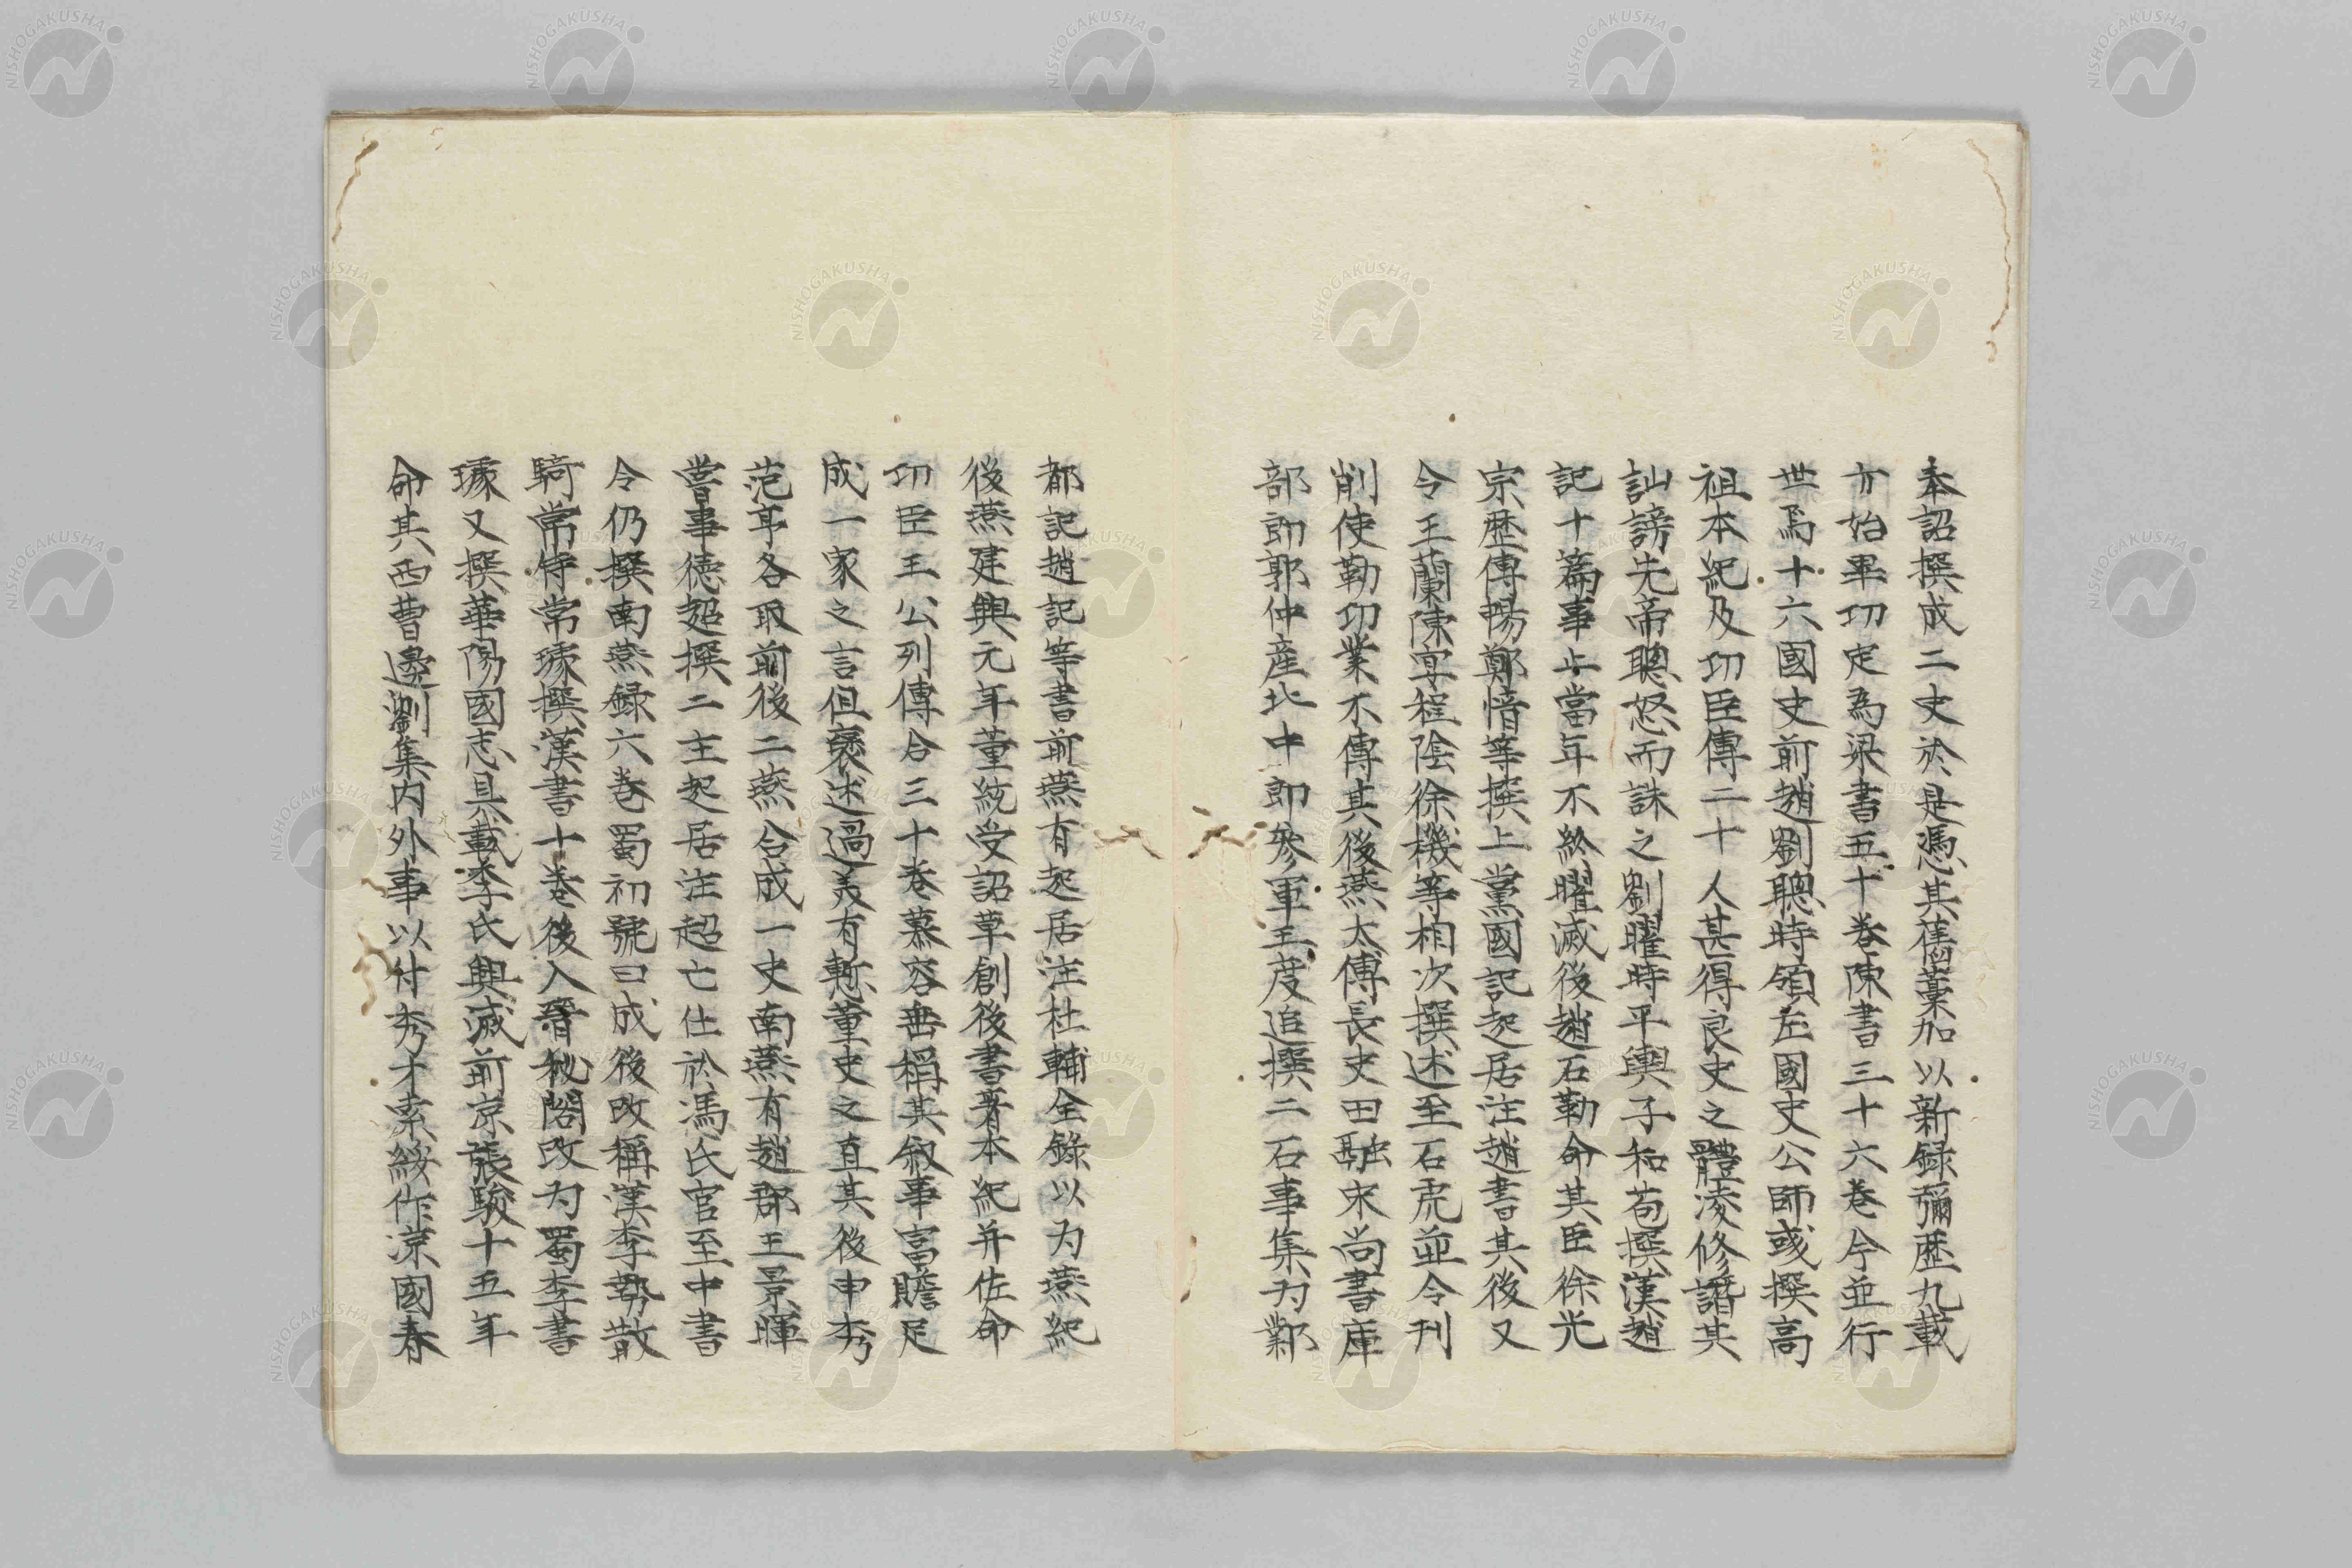 奉詔撰成二史於是憑其舊藁加以新録彌歴九載
方始畢功定為梁書五十巻陳書三十六巻今並行
世焉十六國史前趙劉聰時領左國史公師彧撰高
祖本紀及功臣傳二十人甚得良史之體凌修譖其
訕謗先帝聰怒而誅之劉曜時平輿子和苞撰漢趙
記十篇事止當年不終曜滅後趙石勒命其臣徐光
宗歴傅暢鄭愔等撰上黨國記起居注趙書其後又
令王蘭陳宴程陰徐機等相次撰述至石虎並令刊
削使勒功業不傳其後燕太傅長史田融宋尚書庫
部郎郭仲産北中郎參軍王度追撰二石事集為鄴
都記趙記等書前燕有起居注杜輔全錄以為燕紀
後燕建興元年董統受詔草創後書著本紀并佐命
功臣王公列傳合三十巻慕容垂稱其叙事富贍足
成一家之言但褒述過美有慙董史之直其後申秀
范亨各取前後二燕合成一史南燕有趙郡王景暉
嘗事德超撰二主起居注超亡仕於馮氏官至中書
令仍撰南燕録六巻蜀初號曰成後改稱漢李勢散
騎常侍常璩撰漢書十巻後入晉秘閣改為蜀李書
璩又撰華陽國志具載李氏興滅前凉張駿十五年
命其西曹邊劉集内外事以付秀才索綏作凉國春
NISHOGAKUSHA